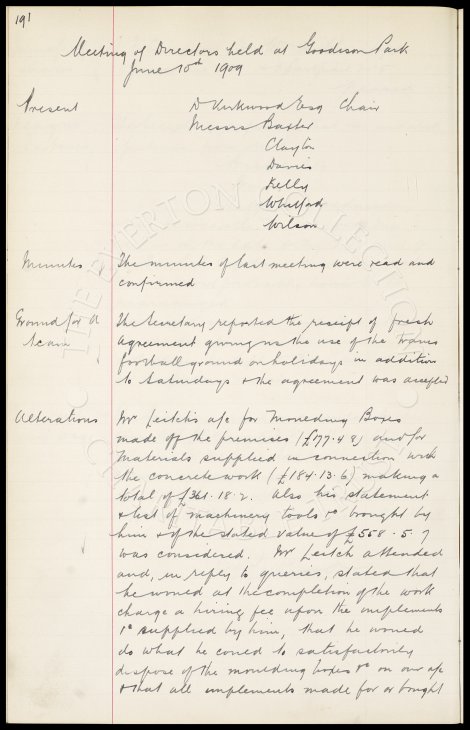 191
Meeting of Directors held at Goodison Park
June 10th 1909
Present
D Kirkwood Esq Chair
Messrs Baxter
Clayton
Davies
Kelly
Whitford
Wilson
Minutes
The minutes of last meeting were read and
confirmed
Ground for A
team
The Secretary reported the receipt of fresh
agreement giving us the use of the
football ground on holidays in addition
to Saturdays & the agreement was accepted
Alterations
Mr Leitch's a/c for Moulding Boxes
made off the premises (£177.4.8) and for
Materials supplied in connection with
the concrete work (£184.13.6) making a
total of £361.18.2. Also his statement
& list of machinery tools &c brought by
him & of the stated value of £558.5.7
was considered. Mr Leitch attended
and, in reply to queries, stated that
he would at the completion of the work
charge a hiring fee upon the implements
&c supplied by him, that he would
do what he could to satisfactorily
dispose of the moulding boxes &c on our a/c
& that all implements made for or bought
THE EVERTON COLLECTION